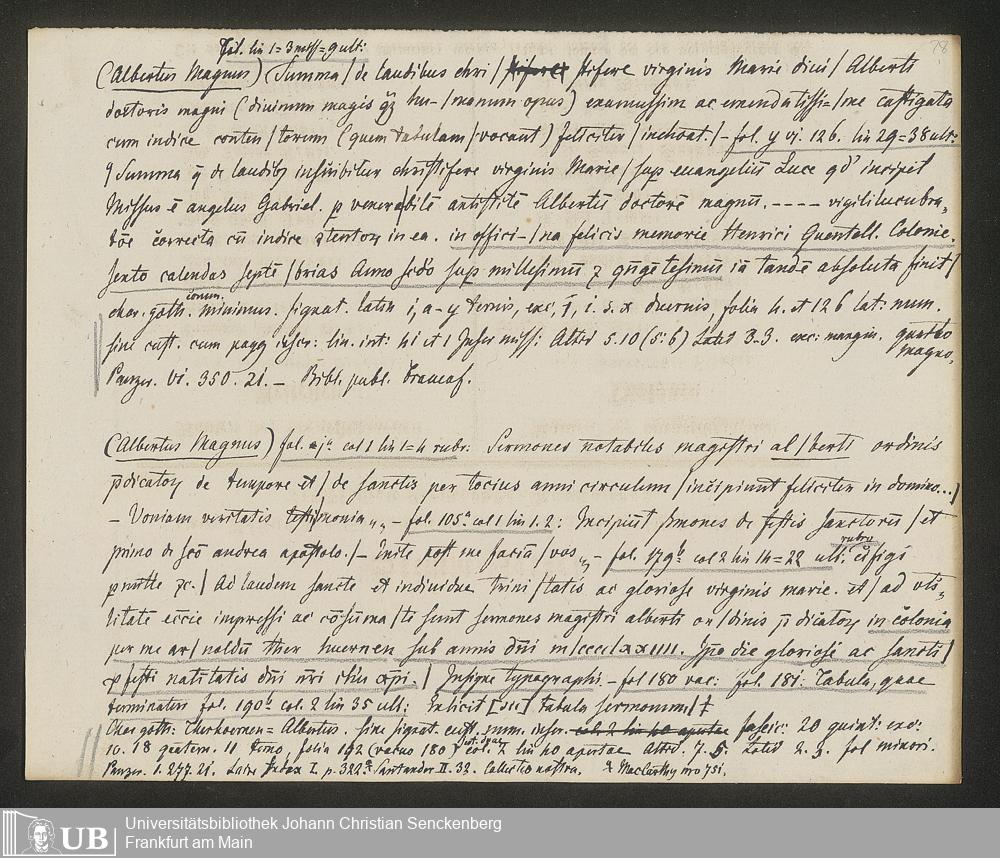 78
Tit. lin 1=3 miss=9 ult:
(Albertus Magnus) (Summa / de laudibus chri / stifere virginis Marie diui / Alberti
doctoris magni (diuinum magis qȝ hu- / manum opus) examussim ac emendatissi- / me castigata
cum indice conten / torum (quem tabulam / vocant) feliciter / inchoat. / - fol. y vj. 126. lin 29=38 ult:
¶ Summa q̄ de laudibȝ inscribitur christifere virginis Marie / sup euangeliū Luce qd' incipit
Missus ē angelus Gabriel. p venerabilē antistitē Albertū doctorē magnū. ---- vigili lucubra-
tōe correcta cū indice in ea. in offici- / na felicis memorie Henrici Quentell. Colonie.
sexto calendas septē / brias Anno scdo sup millesimū ⁊ qngētesimū iā tandē absoluta finit /
char. goth. minimus. signat. latin i, a-y ternis, exc. i. s. x duernis, folia 4. et 126 lat: num.
comm.
sine cust. cum pagg inscr: lin. int: 41 et 1 Infer miss: Altid 5.10 (5:6) Latid 3-3. exc: margin. quarto
magno.
Panzer. VI. 350. 21. — Bibl. publ. francof.
(Albertus Magnus) fol. jᵃ col 1 lin 1=4 rubr: Sermones notabiles magistri al / berti ordinis
p̄dicatoȝ de tempore et / de sanctis per tocius anni circulum / incipiunt feliciter in domino... /
- Uoniam veritatis testimonia „ „ - fol. 105ᵃ col 1 lin 1.2: Incipiūt smones de festis sanctorū / et
primo de scō andrea apostolo. / - Uenite post me faciā / vos „ - fol. 179ᵇ col 2 lin 14=22 ult: cūfigi
rubro
pmitte ⁊c. / Ad laudem sancte et indiuidue trini / tatis ac gloriose virginis marie. et / ad uti-
litatē eccīe impressi ac cōsūma / ti sunt sermones magistri alberti or / dinis p̄dicatoȝ in colonia
per me ar / noldū ther huernen sub annis dn̄i m / cccc / lxxiiii. Ipo die gloriosi ac sancti /
festi natiuitatis dn̄i nr̄i ihū xpi. / Insigne typographi. - fol 180 vac: fol. 181: Tabula, quae
terminatur fol. 190ᵇ col. 2 lin 35 ult: Explicit [sic] tabula sermonum /
Char goth: Therhoernen = Albertus. sine signat. cust. num. inscr. col 2 lin 40 apertae fascic: 20 quint: exc:
10. 18 quatern. 11 terno, folia 192 (vacuo 180) col. 2 lin 40 apertae Altid. 7. 5. Latid 2. 3. fol minori.
Panzer. 1. 277. 21. Laire Index I. p. 322. Santander II. 32. Collectio nostra. MacCarthy nro 751.
UB
Universitätsbibliothek Johann Christian Senckenberg
Frankfurt am Main